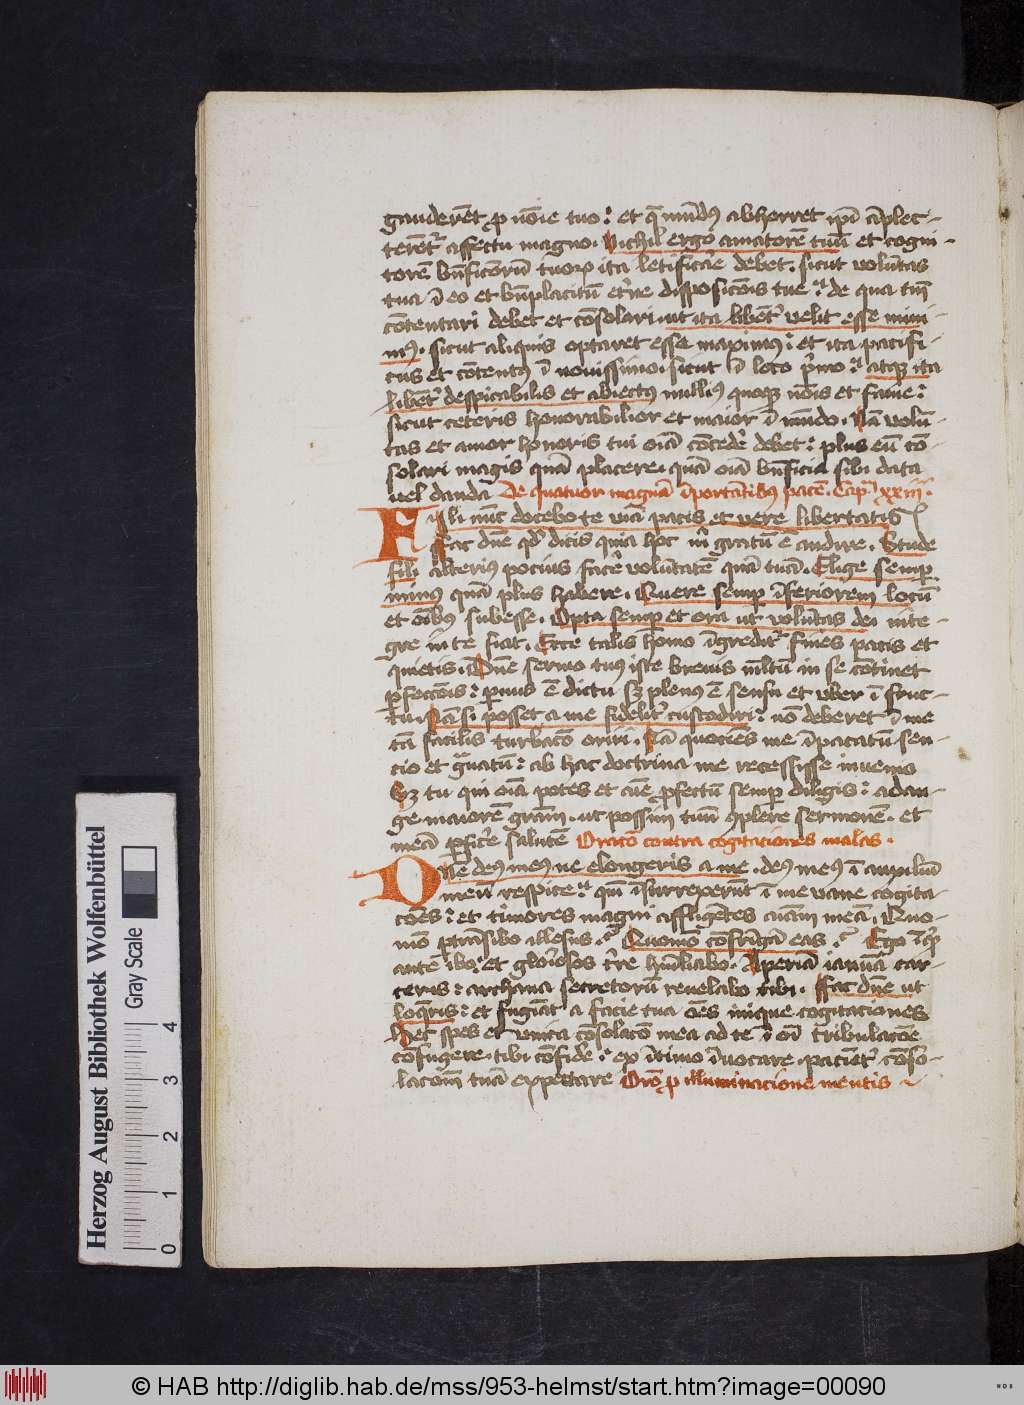 gauderēt ꝓ nōīe tuo: et q̄ mūdꝰ abhorret ipī āplec-
terētr̄ affectu magno. Nichil ergo amatorē tuū et cogni-
torē bn̄ficiorū tuorꝝ ita letificāe debet. sicut volūtas
tua ī eo et bn̄placitū etn̄e disposicōis tue: de qua tm̄
cōtentari debet et cōsolari. ut ita libēt velit esse mini-
mꝰ. sicut aliquis optaret esse maximꝰ: et ita pacifi-
cus et cōtentꝰ ī nouissimo. sicut ī loco p̄mo: atqꝫ ita
libēt despicabilis et abiectꝰ nulliꝰ quoqꝫ nōīs et fame:
sicut ceteris honorabilior et maior ī mūdo. Nā volū-
tas et amor honoris tui oīā cēdē debet: plus eū cō-
solari magis quā placere. quā oīā bn̄ficia sibi data
vel danda De quatuor magnā īportātibꝰ pacē. Cap̄ xxiii.
Fili nūc docebo te viā pacis et vere libertatis
Fac dn̄e qd̄ dicis quia hoc m̄ gratū ē audire. Stude
fili alteriꝰ pocius facē volūtatē quā tuā. Elige semꝑ
minꝰ quā plus habere. Quere semꝑ īferiorem locū
et oībꝰ subesse. Opta semꝑ et ora ut volūtas dei inte-
gre in te fiat. Ecce talis homo īgreditr̄ fines pacis et
quietis. Dn̄e sermo tuꝰ iste breuis mltū in se cōtinet
ꝑfeccōis: ꝑuus ē dictu sꝫ plenꝰ ē sensu et vber ī fruc-
tu. Nā si posset a me fidelit custodiri: nō deberet ī me
tā facilis turbacō oriri. Nā quocies me īpacatū sen-
cio et gͣuatū: ab hac doctrina me recessisse inuenio
Sꝫ tu qui oīā potes et aīe ꝓfectū semꝑ diligis: adau-
ge maiorē grām. ut possim tuū ꝯplere sermonē. et
meā ꝑficē salutē Oracō contra cogitaciones malas.
Dn̄e deꝰ meꝰ ne elongeris a me. deꝰ meꝰ ī auxiliū
meū respice: qm̄ īsurrexerūt ī me vane cogita-
cōes: et timores magni affligētes aīam mea. Quo-
mō ptrāsibo illesus? Quomō cōfrīgā eas? Ego īqͭ
ante ibo: et gloīosos tr̄e hūiliabo. Aperiā ianuā car-
ceris: archana secretorū reuelabo tibi. Fac dn̄e ut
loq̄ris: et fugiāt a facie tua oēs inique cogitaciones
Hec spes et vnica cōsolacō mea ad te ī oī tribulacōe
cōfugere. tibi cōfidē: ex ītimo īuocare. paciēt cōso-
lacōm̄ tuā expectare Orō ꝓ illuminacione mentis
Herzog August Bibliothek Wolfenbüttel
Gray Scale
0 1 2 3 4
© HAB http://diglib.hab.de/mss/953-helmst/start.htm?image=00090